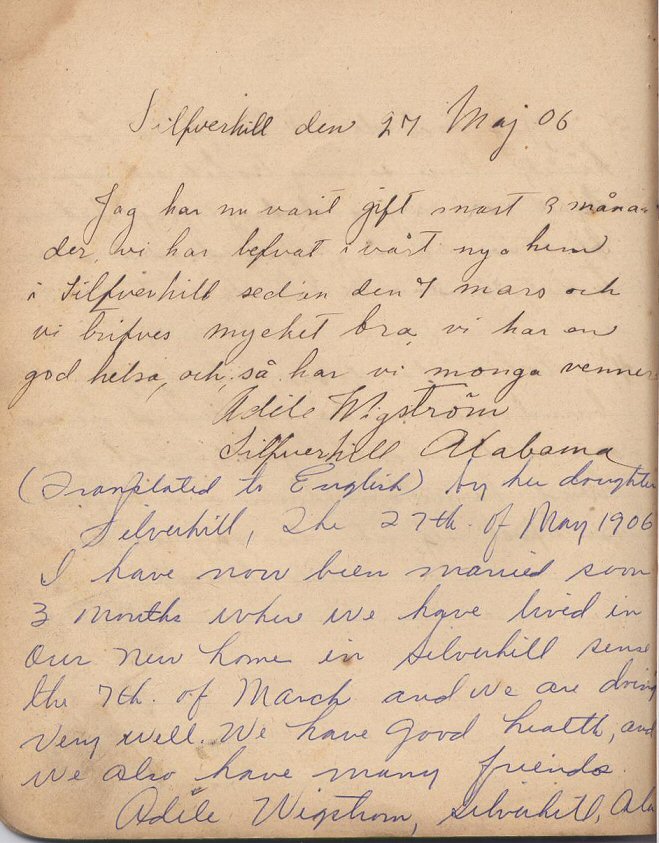 Silfverhill den 27 Maj 06
Jag har nu varit gift snart 3 måna-
der, vi har lefvat i vårt nya hem
i Silfverhill sedan den 7 mars och
vi trifves mycket bra, vi har en
god helsa, och så har vi monga venner
Adéle Wigström
Silfverhill Alabama
(Translated to English) by her doughter
Silverhill, The 27th. of May 1906
I have now been married soon
3 months where we have lived in
our new home in Silverhill sense
the 7th. of March and we are doing
very well. We have good health, and
we also have many friends.
Adéle Wigstrom, Silverhill, Ala